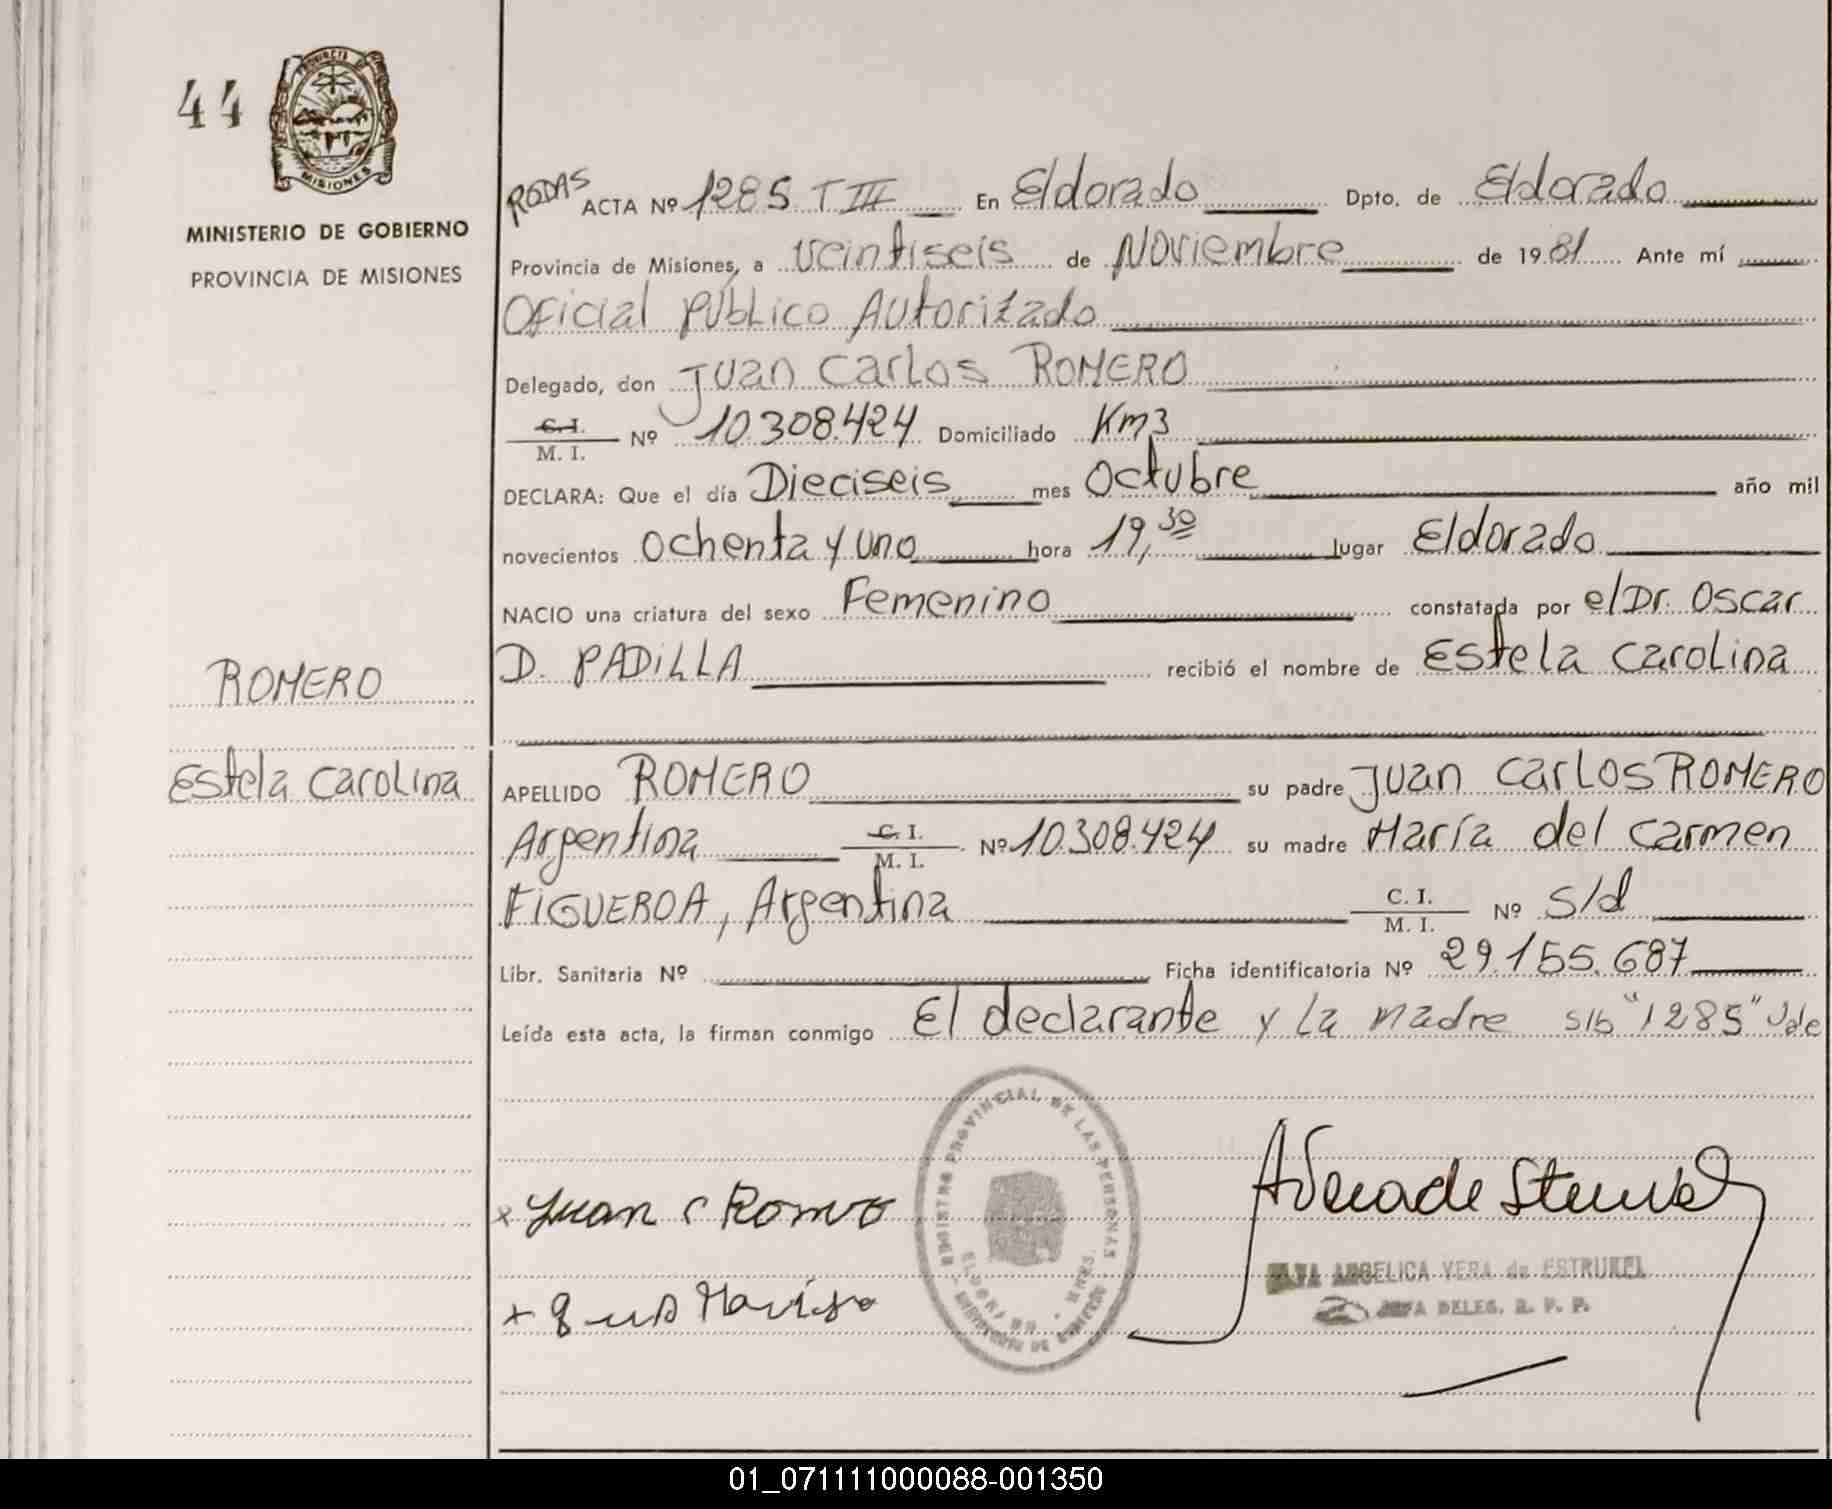 44
PROVINCIA DE
MISIONES
MINISTERIO DE GOBIERNO
PROVINCIA DE MISIONES
RODAS ACTA Nº 1285 T III En Eldorado Dpto. de Eldorado
Provincia de Misiones, a veintiseis de Noviembre de 1981 Ante mí
Oficial Público Autorizado
Delegado, don Juan Carlos ROMERO
C. I.
M. I. Nº 10.308.424 Domiciliado Km 3
DECLARA: Que el día Dieciseis mes Octubre año mil
novecientos ochenta y uno hora 19,30 lugar Eldorado
NACIO una criatura del sexo Femenino constatada por el Dr. Oscar
D. PADILLA recibió el nombre de Estela Carolina
ROMERO
Estela Carolina
APELLIDO ROMERO su padre Juan Carlos ROMERO
Argentina C. I. M. I. Nº 10.308.424 su madre María del Carmen
FIGUEROA, Argentina C. I. M. I. Nº s/d
Libr. Sanitaria Nº Ficha identificatoria Nº 29.155.687
Leída esta acta, la firman conmigo El declarante y la madre s/b "1285" Vale
REGISTRO PROVINCIAL DE LAS PERSONAS
ELDORADO - MNES.
MINISTERIO DE GOBIERNO
x Juan C Romero
ANGELICA VERA de ESTRUKEL
JEFA DELEG. R. P. P.
01_071111000088-001350